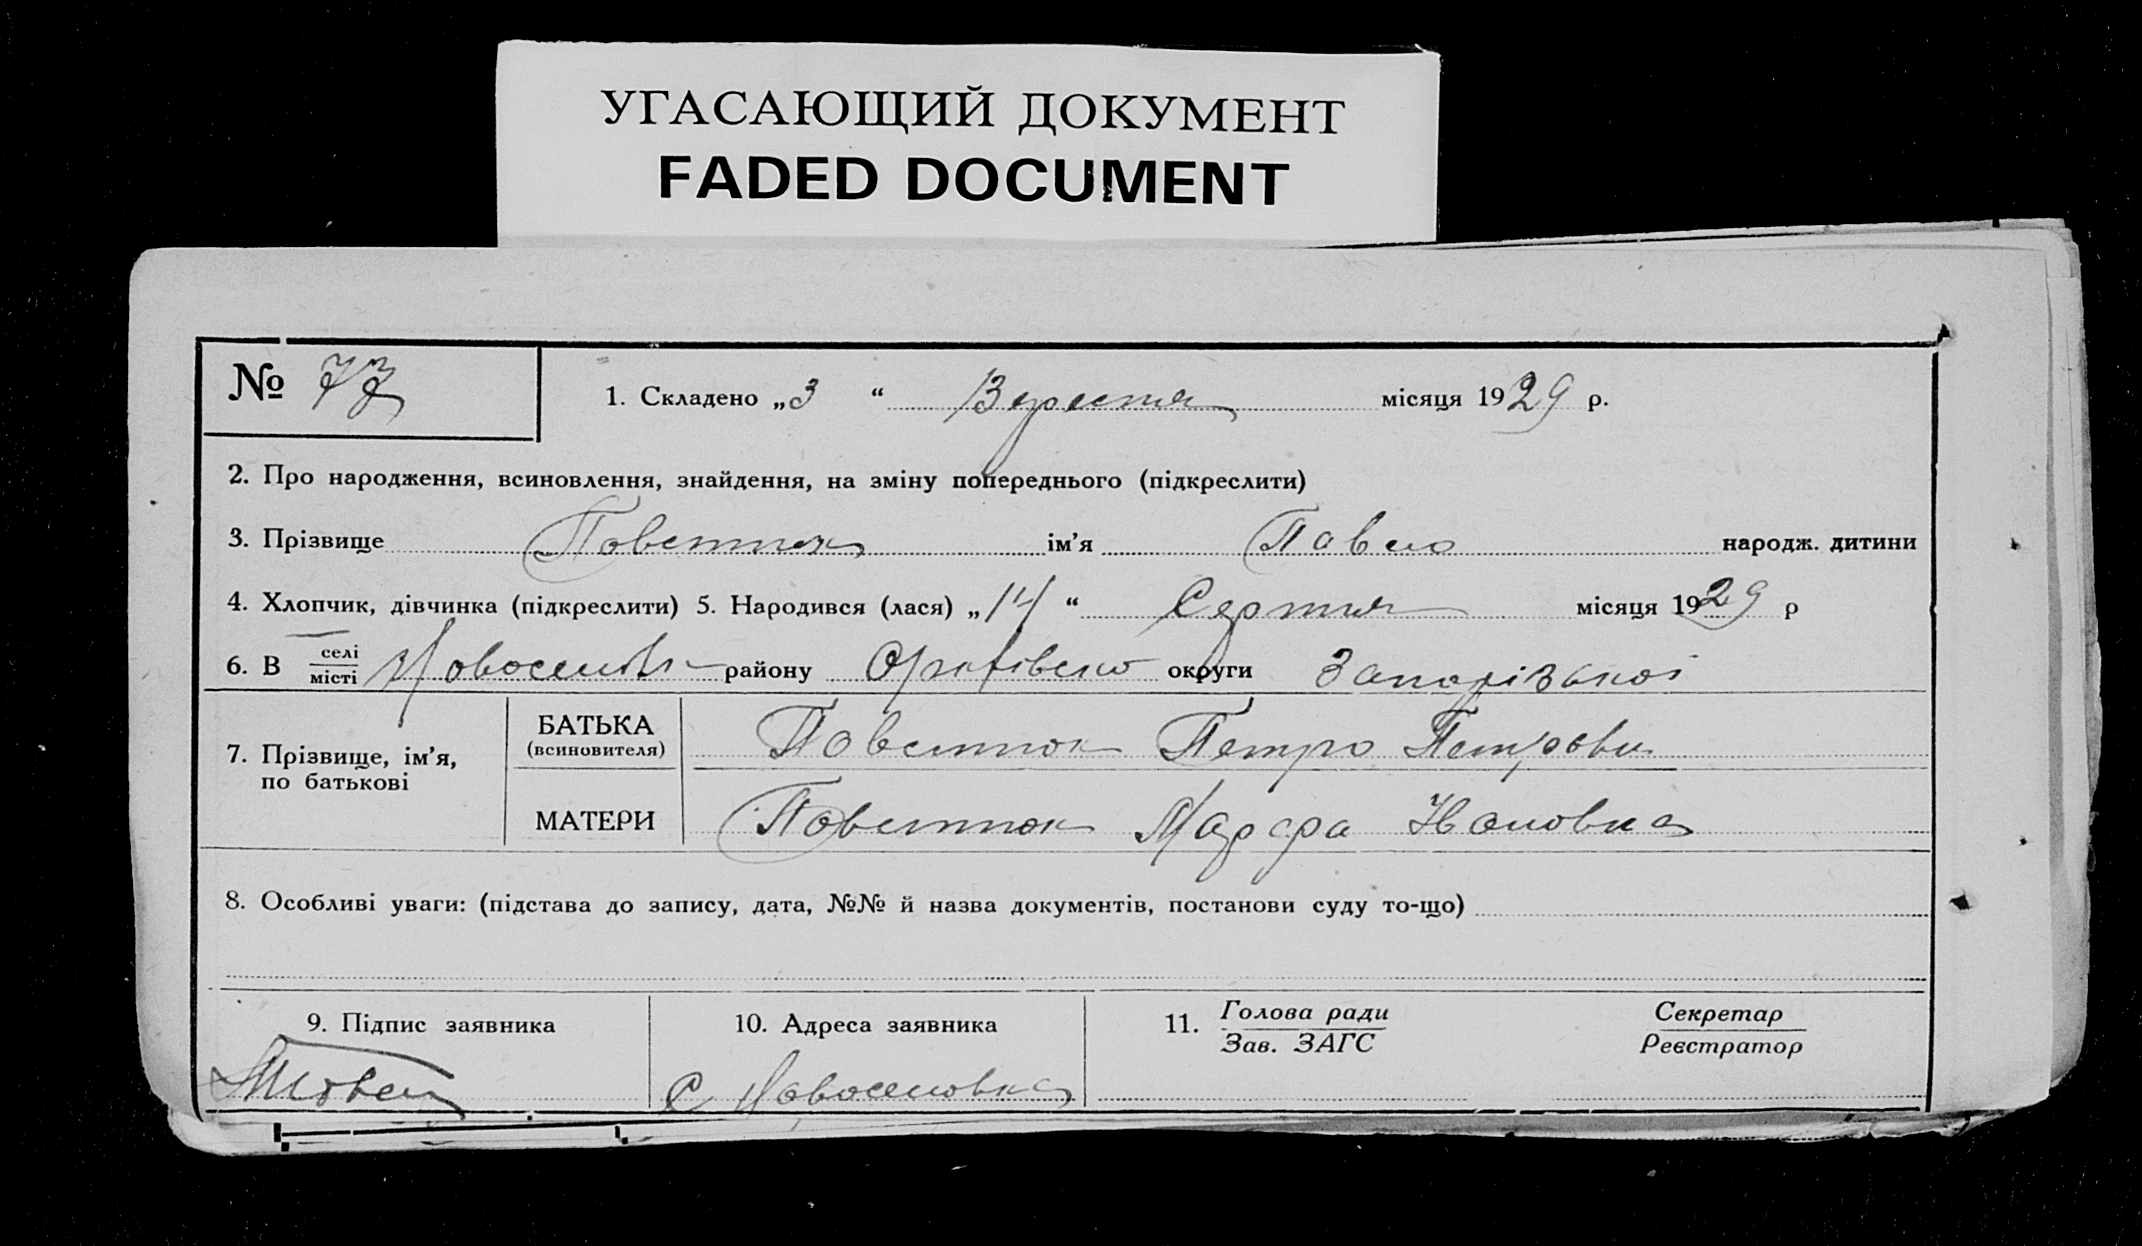 УГАСАЮЩИЙ ДОКУМЕНТ
FADED DOCUMENT
№ 73
1. Складено „3 “ Вересня місяця 1929 р.
2. Про народження, всиновлення, знайдення, на зміну попереднього (підкреслити)
3. Прізвище ім’я Павло народж. дитини
4. Хлопчик, дівчинка (підкреслити) 5. Народився (лася) „14“ Серпня місяця 1929 р
6. В селі місті Новоселовка району округи Запорізької
7. Прізвище, ім’я, по батькові
БАТЬКА (всиновителя) Петро Петрович
МАТЕРИ Марфа
8. Особливі уваги: (підстава до запису, дата, №№ й назва документів, постанови суду то-що)
9. Підпис заявника
10. Адреса заявника
с Новоселовка
11. Голова ради
Зав. ЗАГС
Секретар
Реєстратор